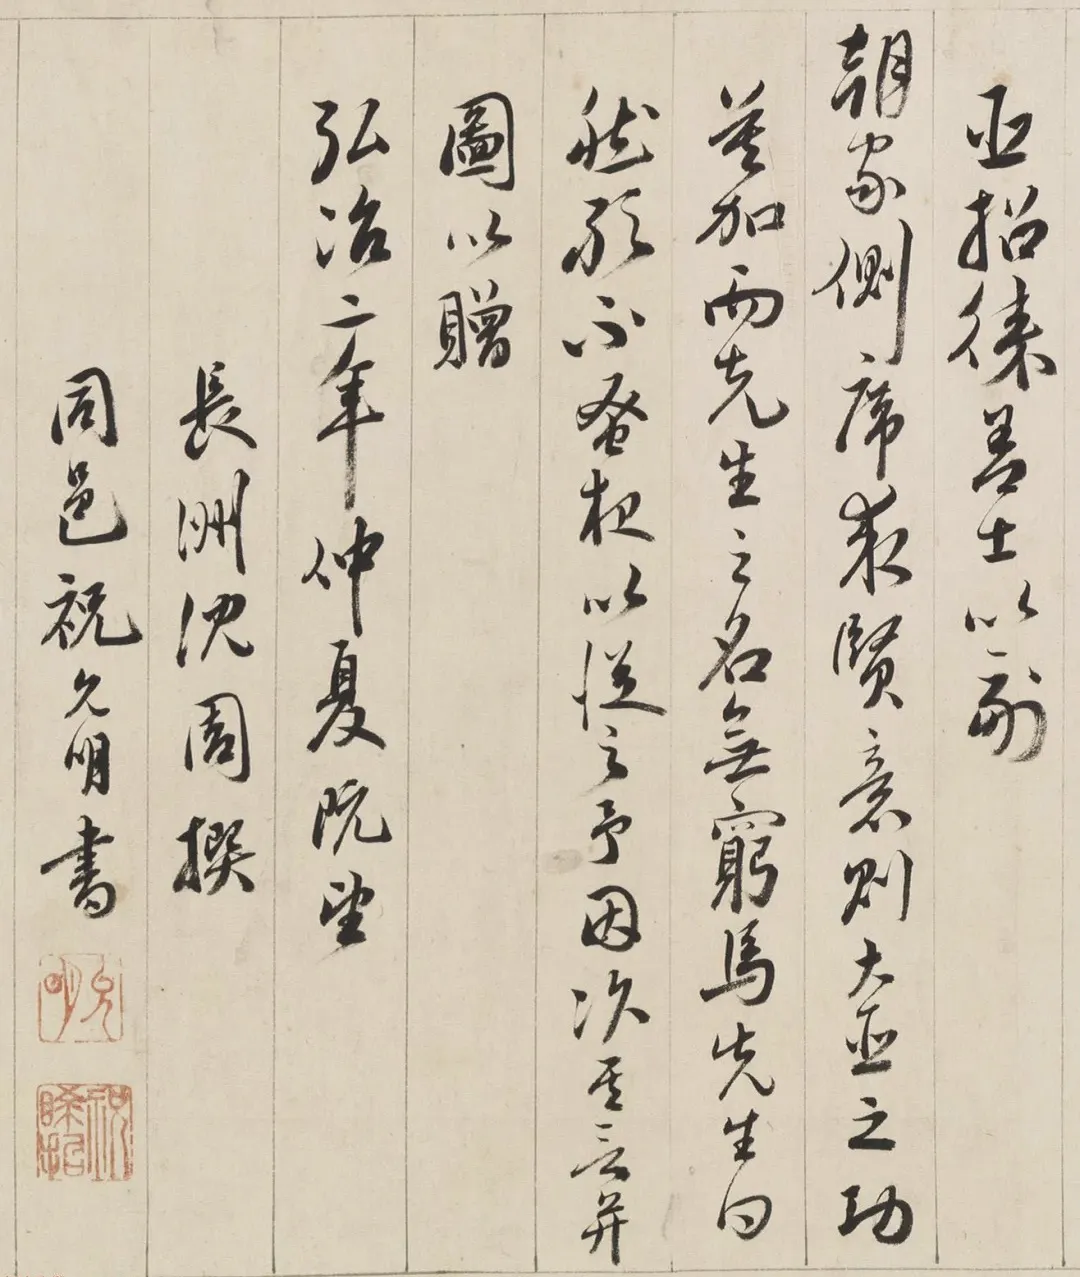 亟招徠善士以副
朝家側席求賢意則大亟之功
莫加而先生之名無窮焉先生曰
然敢不蚤夜以從之予因次其言并
圖以贈
弘治二年仲夏既望
長洲沈周撰
同邑祝允明書
允明
祝睎哲